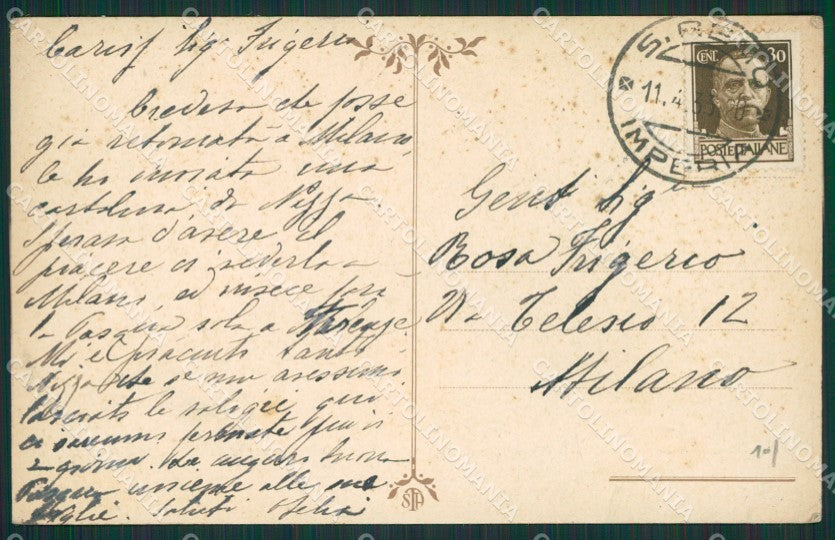 Cariss Sig. Frigerio
Credevo che fosse
già ritornata a Milano,
le ho inviato una
cartolina da Nizza.
Speravo d'avere il
piacere di vederla a
Milano, ed invece farà
la Pasqua sola a Firenze.
Mi è piaciuta tanto
Nizza che se non avessimo
lasciato le valigie qui
ci saremmo fermate più di
2 giorni. Le auguro buona
Pasqua insieme alle sue
figlie. Saluti
Gent Sig
Rosa Frigerio
Via Telesio 12
Milano
S. REMO
11.4.35
IMPERIA
CENT. 30
POSTE ITALIANE
STA
10/
CARTOLINOMANIA